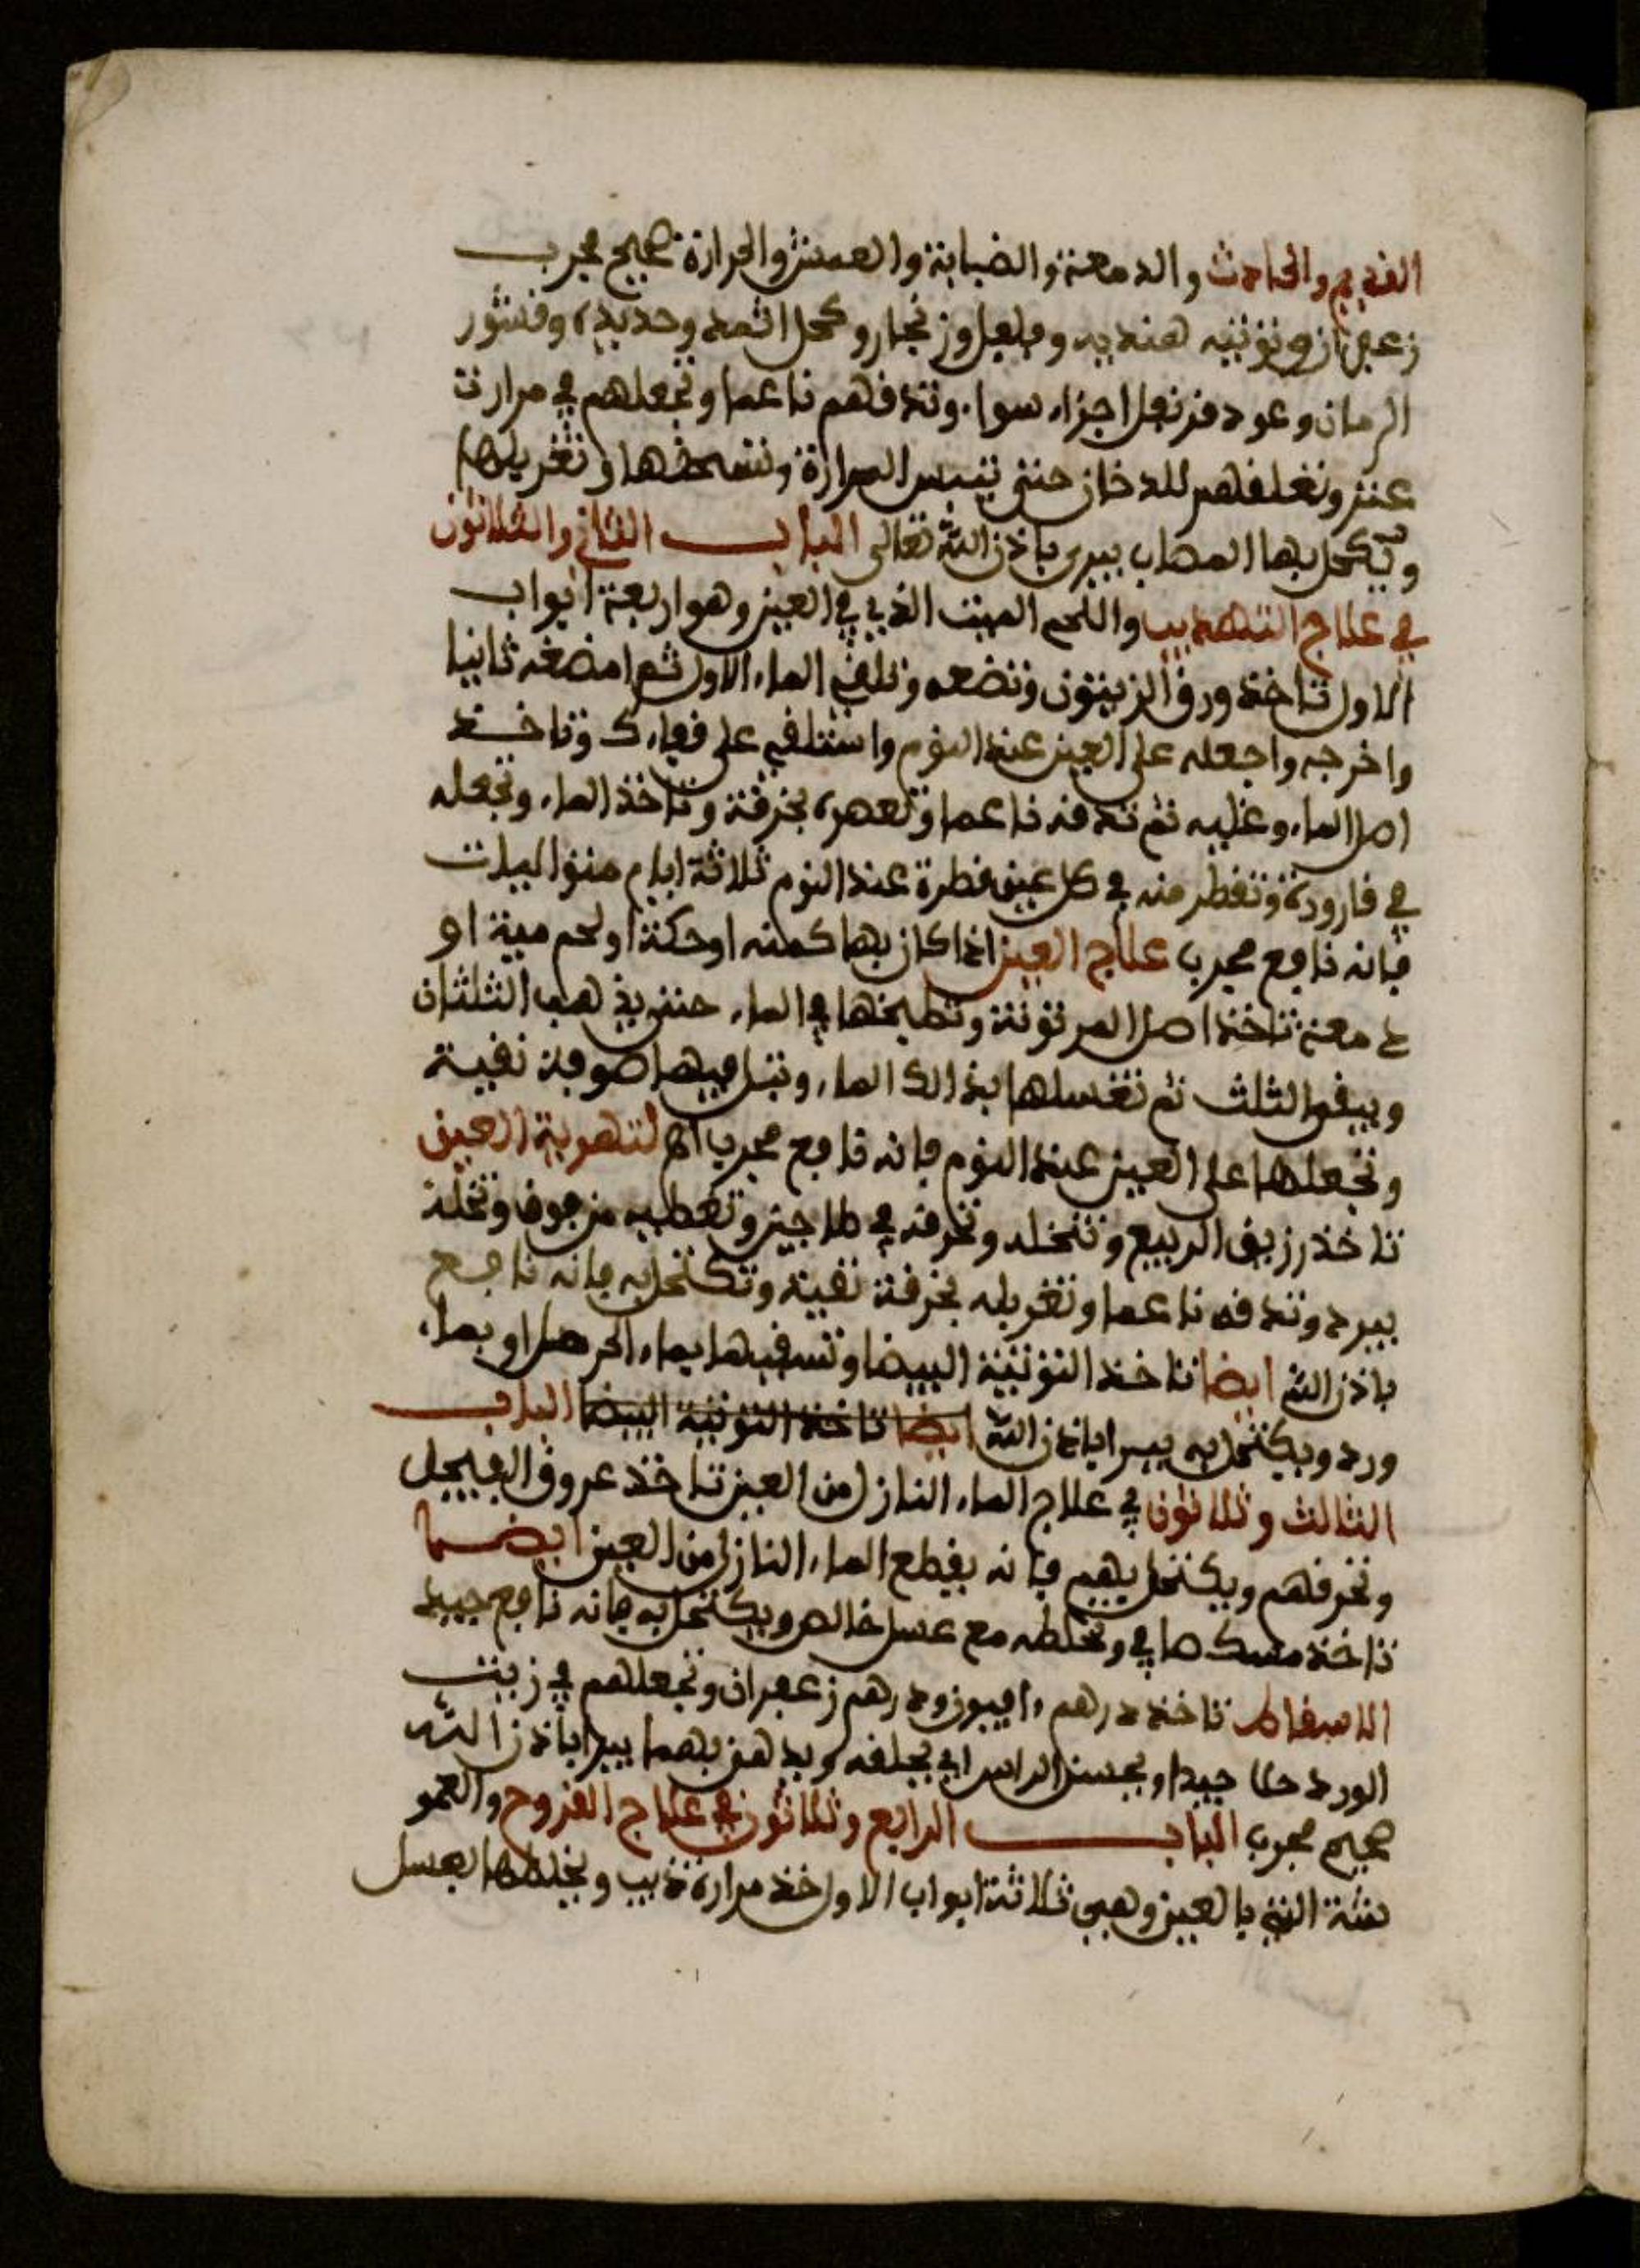 القديم والحادث والدمعة والضبابة والعمش والحرارة صحيح مجرب
زعفران وتوتيه هنديه وفلفل وزنجار وكحل اثمد وحديدة وقشور
الرمان وعود قرنفل اجزاء سواء وتدقهم ناعما وتجعلهم في مرارت
عنز وتعلقهم للدخان حتى تيبس المرارة وتسحقها وتغربلها
وتكحل بها المصاب يبرى باذن الله تعالى الباب الثاني والثلاثون
في علاج واللحم الميت الذي في العين وهو اربعة ابواب
الاول تاخذ ورق الزيتون وتضعه وتلق الماء الاول ثم امضغه ثانيا
واخرجه واجعله على العين عند النوم واستلقي على قفاءك وتاخذ
اصل الماء وغليه ثم تدقه ناعما وتعصره بخرقة وتاخذ الماء وتجعله
في قارورة وتقطر منه في كل عين قطرة عند النوم ثلاثة ايام متواليات
فانه نافع مجرب علاج العين اذا كان بها كمنه او حكة او لحم ميتة او
دمعة تاخذ اصل وتطبخها في الماء حتى يذهب الثلثان
ويبقى الثلث ثم تغسلها بذالك الماء وتبل فيها صوفة نقية
وتجعلها على العين عند النوم فانه نافع مجرب اه العين
تاخذ الربيع وتنخله وتحرقه في طاجين وتغطيه من فوق وتخله
يبرد وتدقه ناعما وتغربله بخرقة نقية وتكتحل به فانه نافع
باذن الله ايضا تاخذ التوتية البيضا وتسقيها بماء الحرمل او بماء
ورد ويكتحل به يبرا باذن الله ايضا تاخذ التوتية البيضا الباب
الثالث وثلاثون في علاج الماء النازل من العين تاخذ عروق الفيجل
وتحرقهم ويكتحل بهم فانه يقطع الماء النازل من العين ايضا
تاخذ مسك صافي وتخلطه مع عسل خالص ويكتحل به فانه نافع جيد
تاخذ درهم افيون ودرهم زعفران وتجعلهم في زيت
الورد حلا جيدا ويحسن الراس اي يحلقه ويدهن بهما يبرا باذن الله
صحيح مجرب الباب الرابع وثلاثون في علاج القروح
التي بالعين وهي ثلاثة ابواب الاول خذ مرارة ذيب ويخلطها بعسل